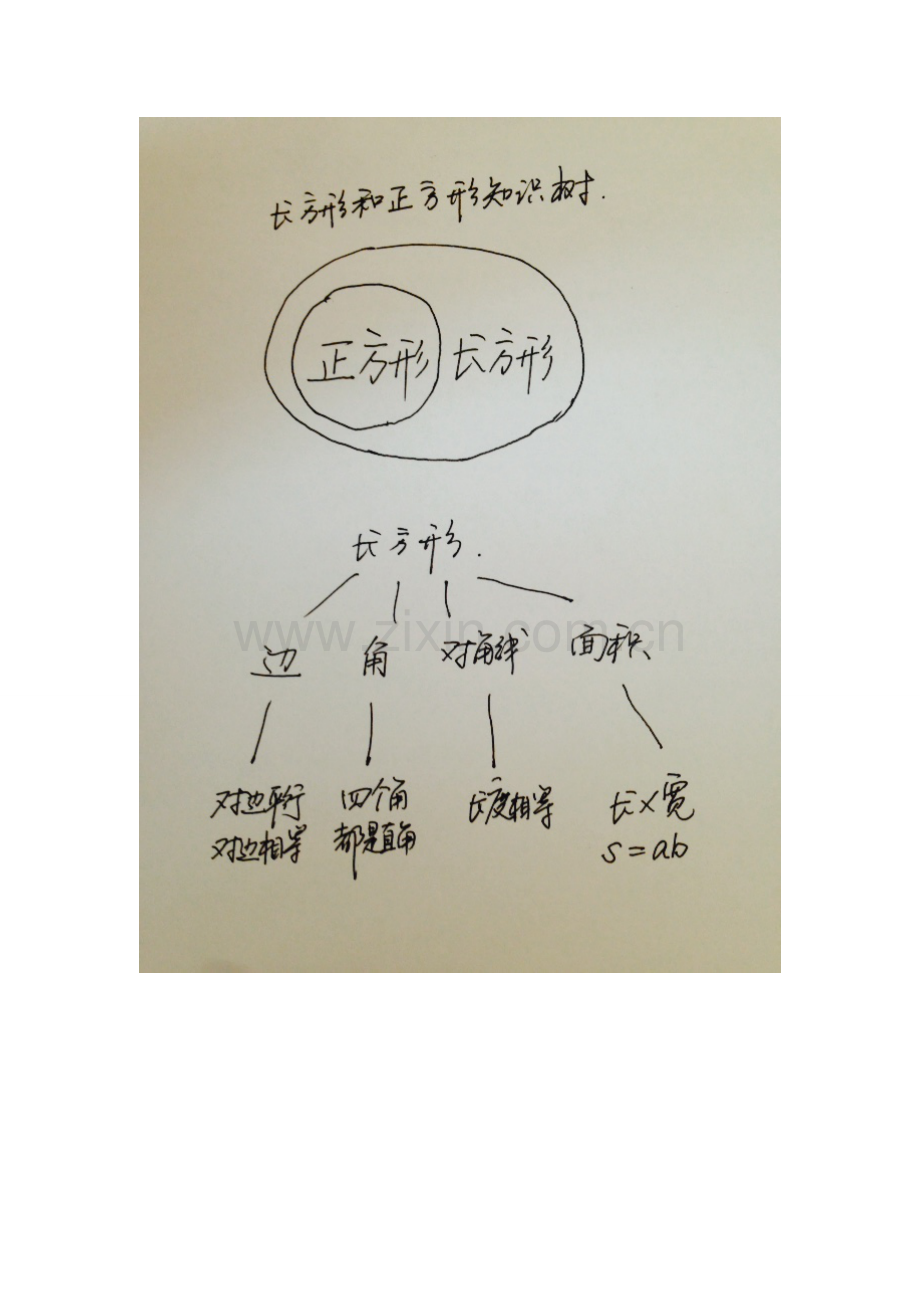 长方形和正方形知识树.
正方形 长方形
长方形.
边 角 对角线 面积
对边平行 四个角 长度相等 长×宽
对边相等 都是直角 S=ab
www.zixin.com.cn